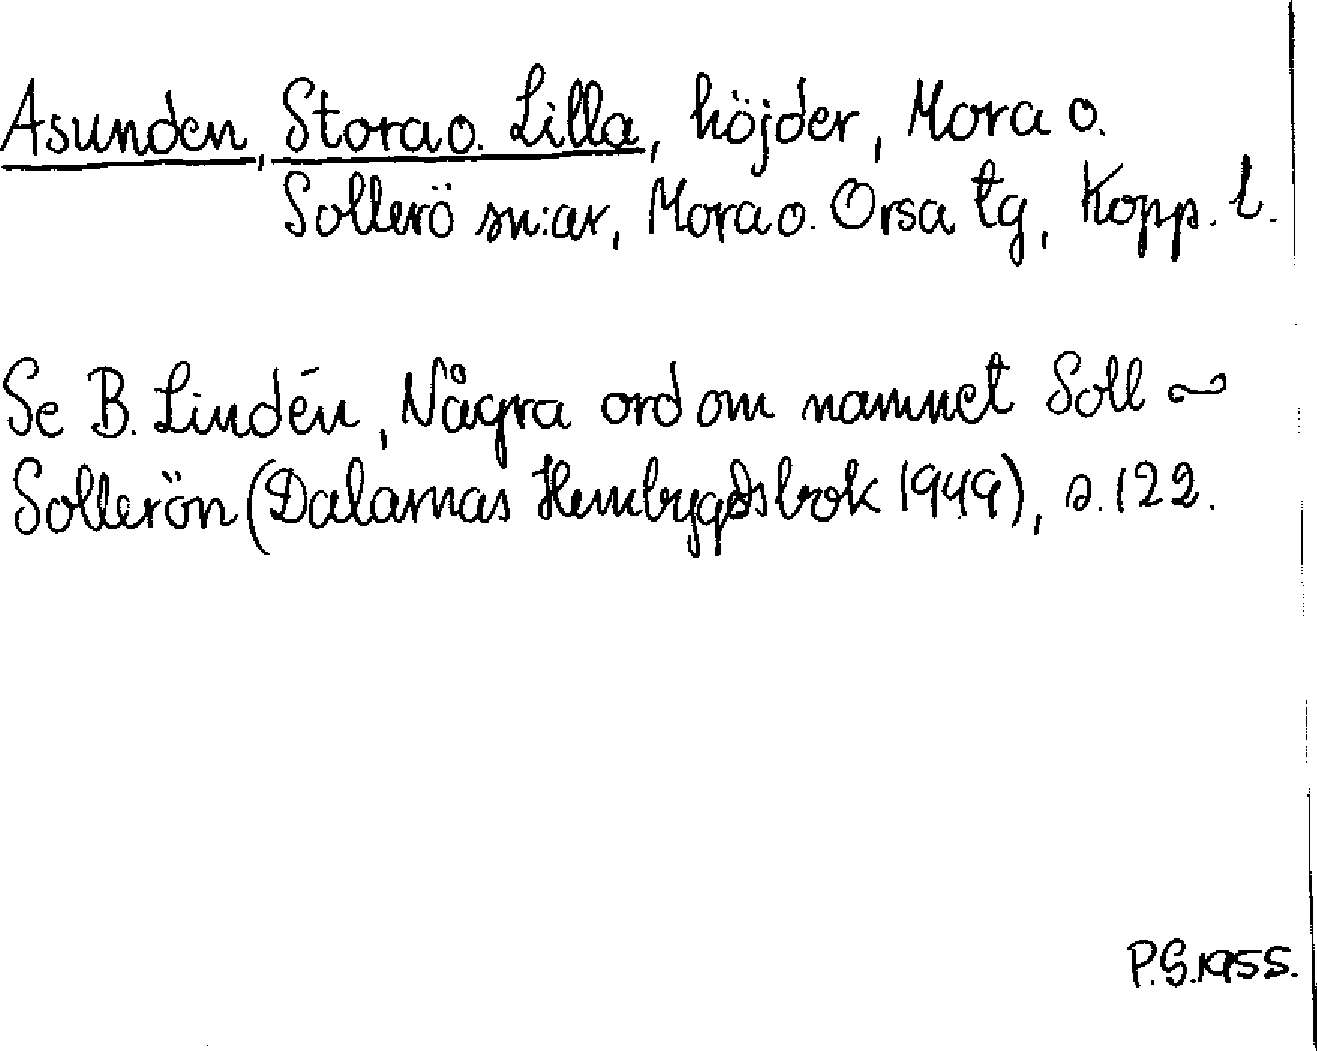 Asunden, Stora o. Lilla, höjder, Mora o.
Sollerö sn:ar, Mora o. Orsa tg, Kopp. l.
Se B. Lindén, Några ord om namnet Soll ~
Sollerön (Dalarnas Hembygdsbok 1949), s. 122.
P.G. 1955.